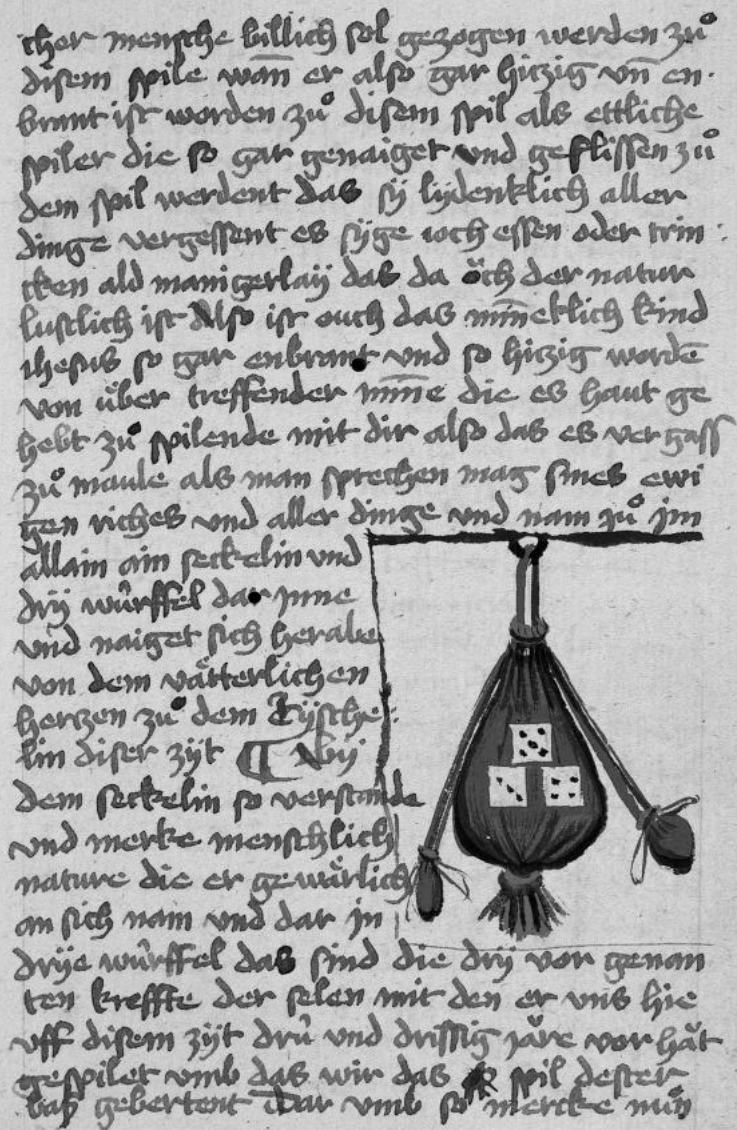 cher mensche billich sol gezogen werden zuͦ
disem spile wan̄ er also gar hitzig vn̄ en·
brant ist worden zuͦ disem spil als ettliche
spiler die so gar genaiget und geflissen zuͦ
dem spil werdent das sÿ lydenklich aller
dinge vergessent es sÿge ioch essen oder trin:
cken ald manigerlaÿ das da ŏch der natur
lustlich ist Also ist ouch das min̄eklich kind
ihesus so gar enbrant und so hitzig wordē
von uͤber treffender min̄e die es haut ge
hebt zuͦ spilende mit dir also das es vergass
zuͦ maule als man sprechen mag sines ewi
gen riches und aller dinge und nam zuͦ jm
allain ain seckelin und
drÿ wuͤrffel dar jnne
und naiget sich herabe
von dem vaͤtterlichen
hertzen zuͦ dem Tÿsche:
lin diser zÿt ¶ Bÿ
dem seckelin so verstande
und merke menschlich
nature die er gewaͤrlich
an sich nam und dar jn
drÿe wuͤrffel das sind die drÿ vor genan
ten kreffte der selen mit den er vns hie
vff disem zÿt druͤ und drissig jaͤre vor haͤt
gespilet vmb das wir das spil dester
bas gebertent Dar vmb so mercke nuͦn